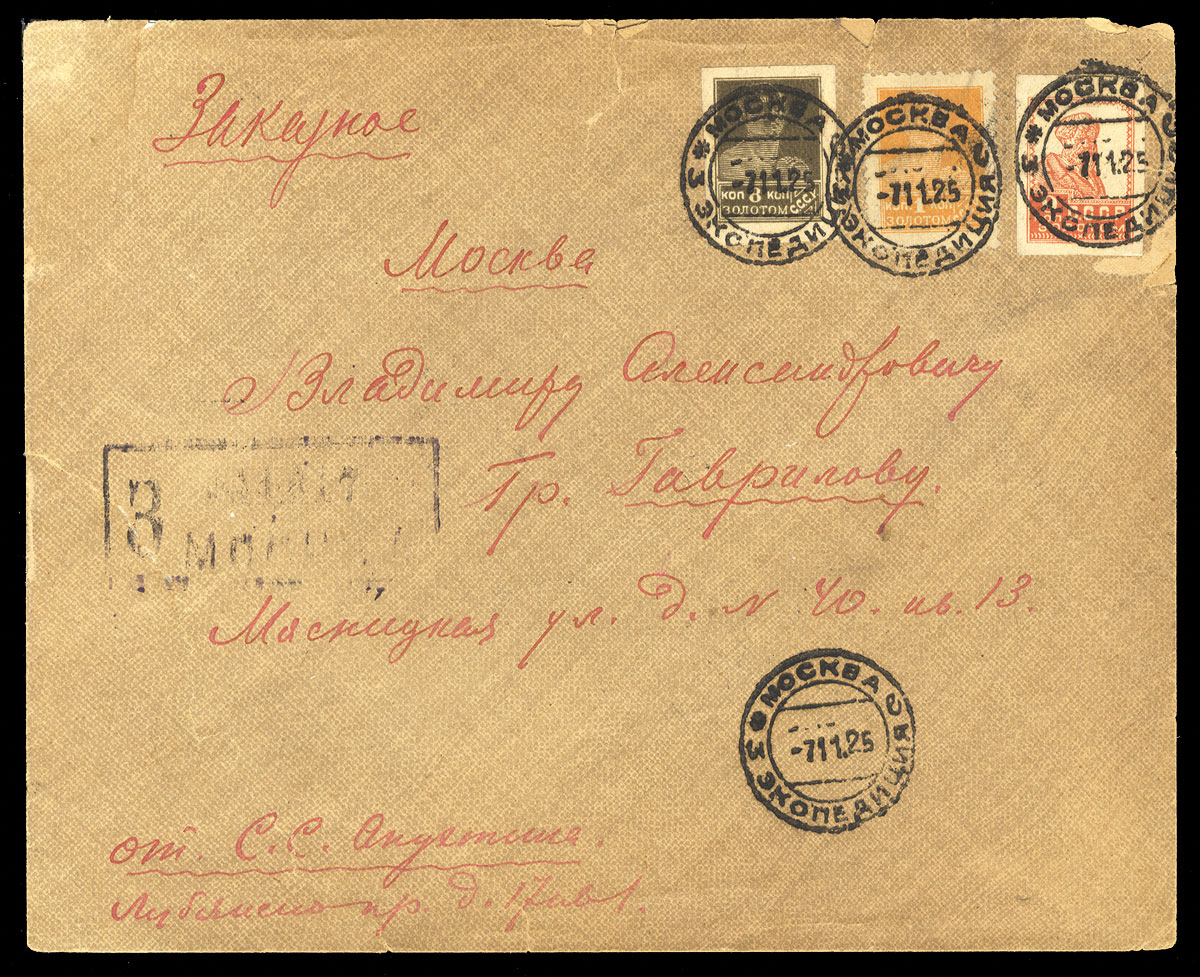 МОСКВА
3 ЭКСПЕДИЦИЯ
-7 11.25
КОП 8 КОП
ЗОЛОТОМ СССР
МОСКВА
3 ЭКСПЕДИЦИЯ
-7 11.25
КОП 1 КОП
ЗОЛОТОМ
МОСКВА
3 ЭКСПЕДИЦИЯ
-7 11.25
СССР
Заказное
Москва
Владимиру Александровичу
Гр. Гаврилову.
3
МОСКВА
Мясницкая ул. д. N 40. кв. 13.
МОСКВА
3 ЭКСПЕДИЦИЯ
-7 11.25
от. С. С. Апухтина.
пр. д. 17 кв 1.